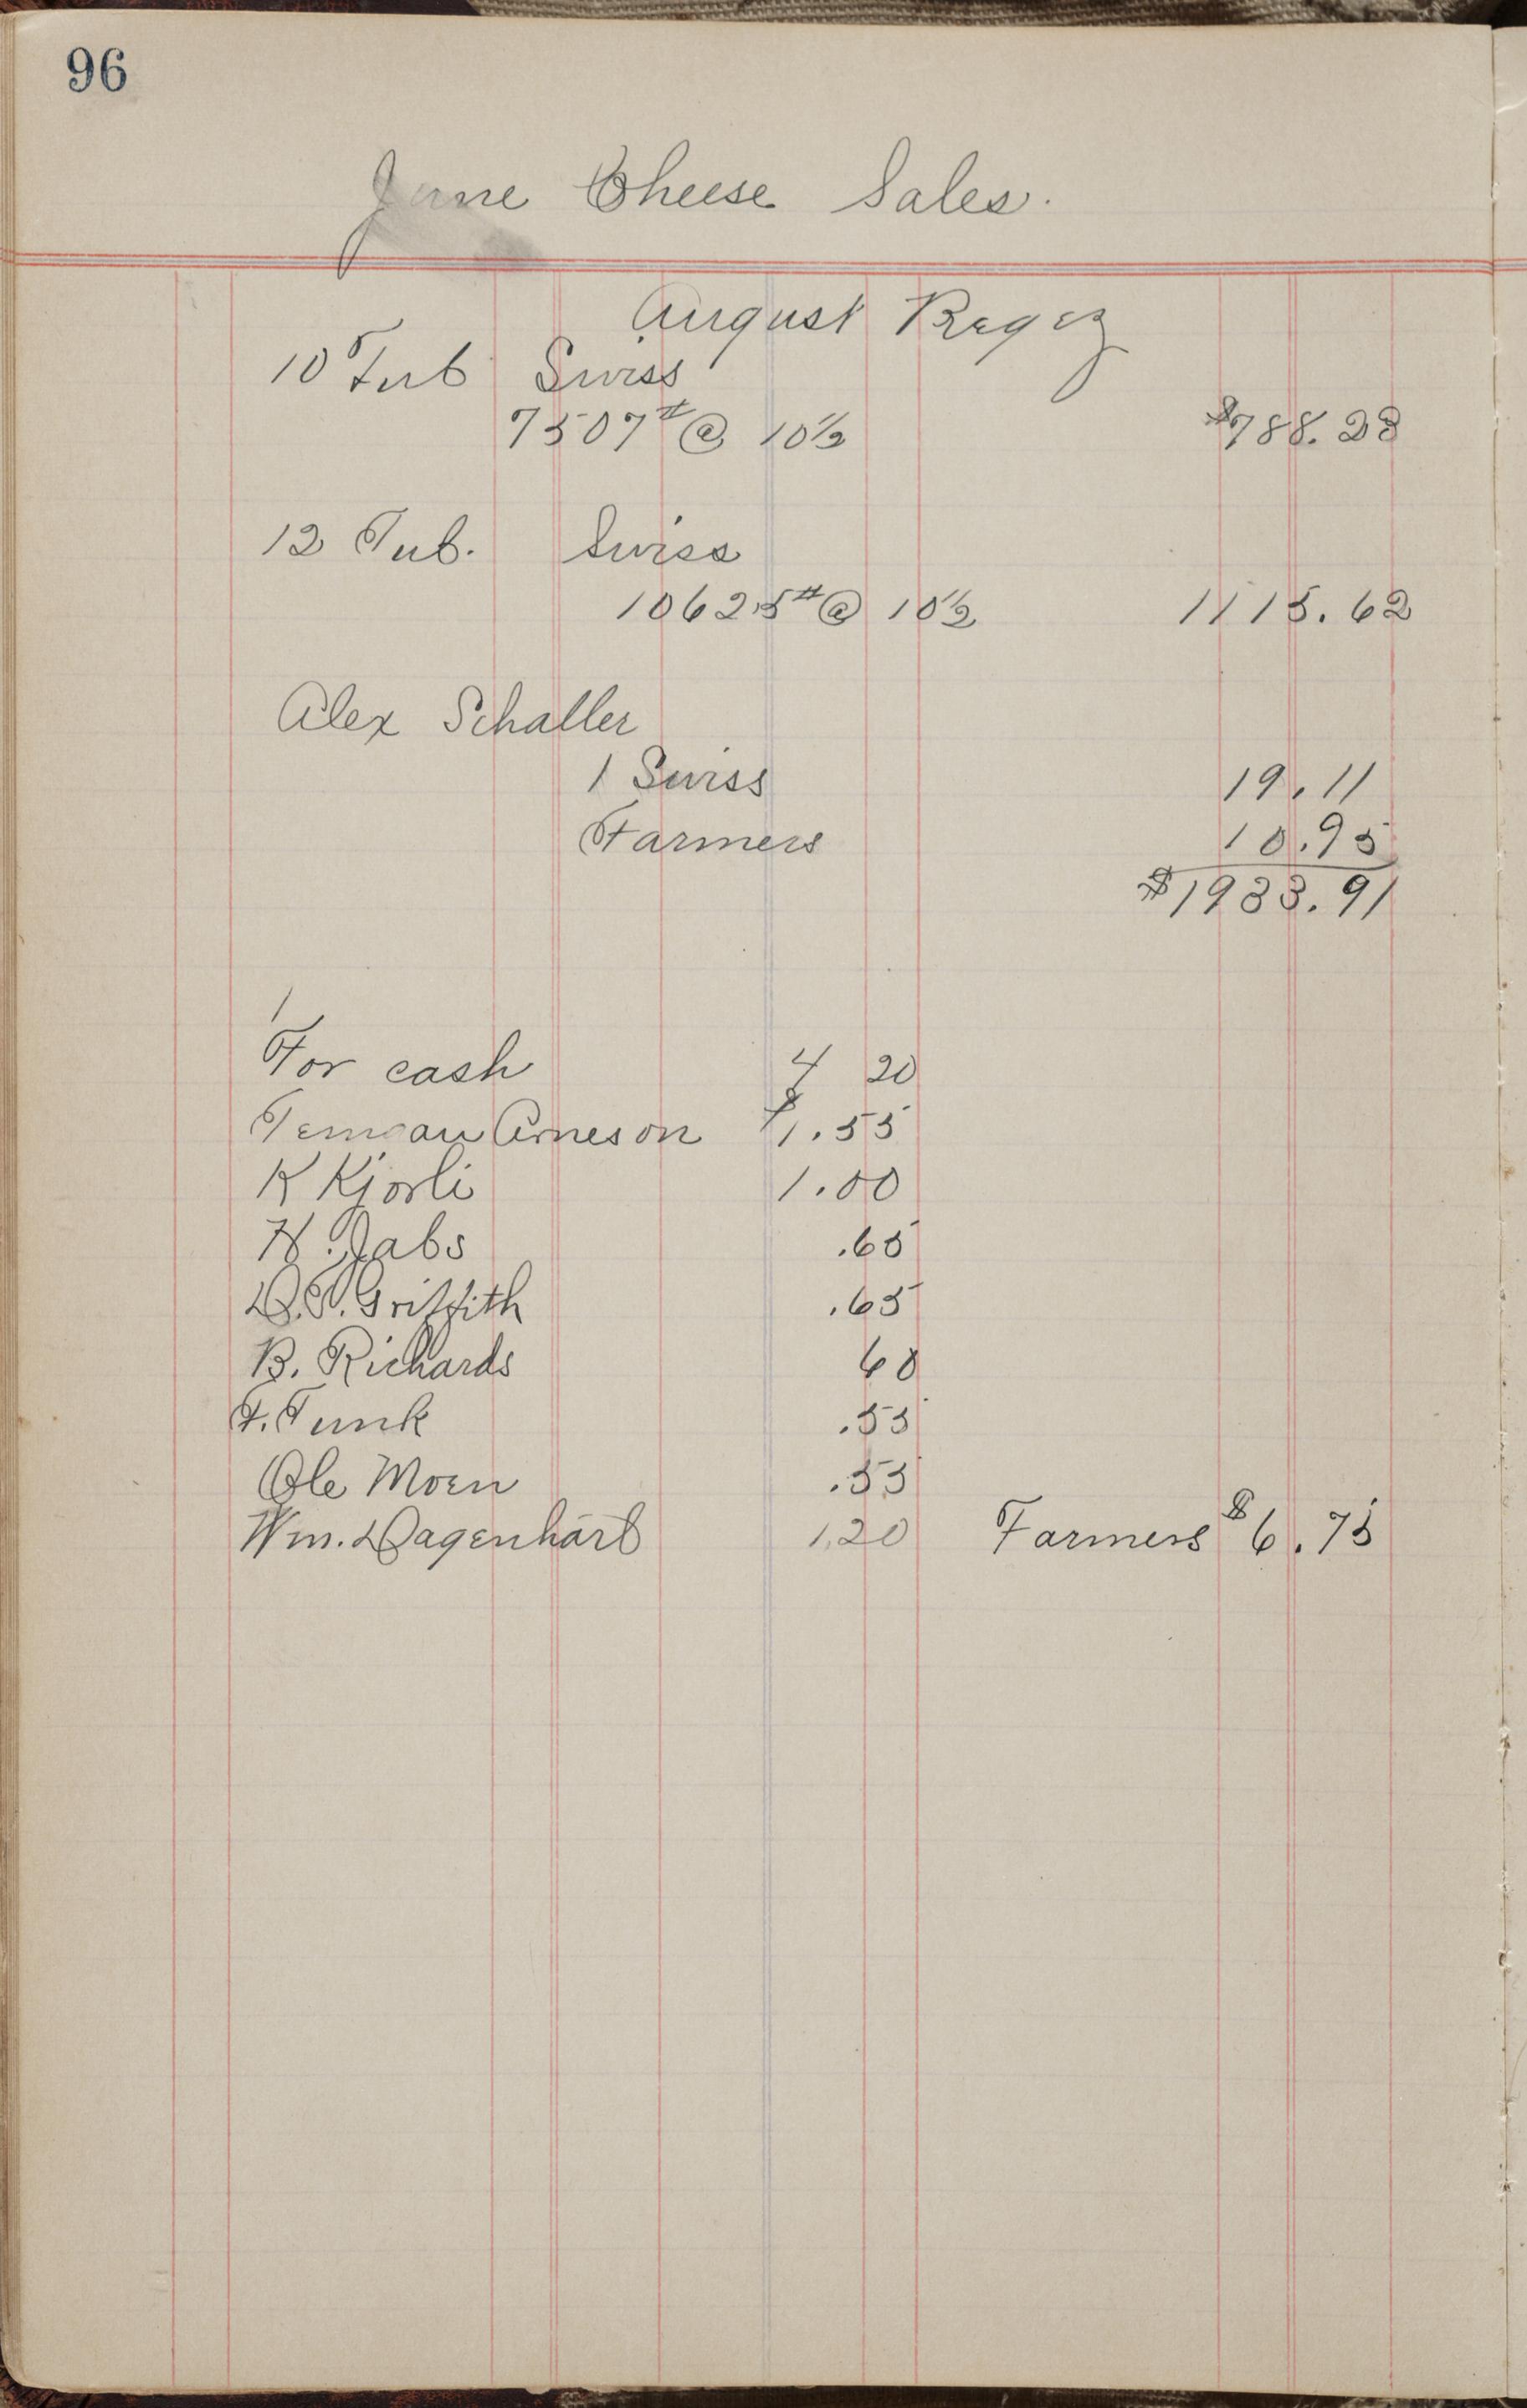 96
June Cheese Sales.
August Regez
10 Tub Swiss
7507# @ 10½ $788.23
12 Tub. Swiss
10625# @ 10½ 1115.62
Alex Schaller
1 Swiss 19.11
Farmers 10.95
$1933.91
/
For cash 4 20
Arneson $1.55
K Kjorli 1.00
H. Jabs .65
Griffith .65
B. Richards 60
F. Funk .55
Ole Moen .55
Wm. Dagenhart 1.20 Farmers $6.75